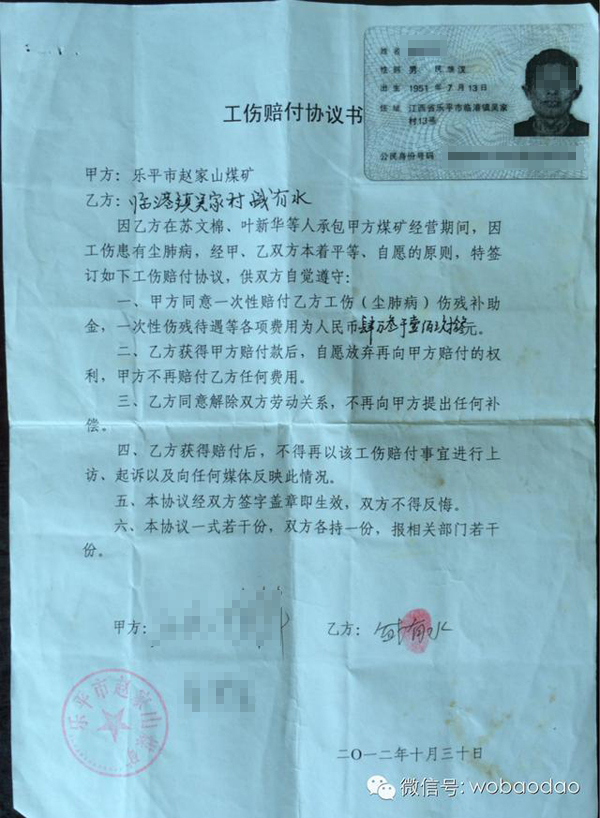 姓名
性别 男 民族 汉
出生 1951 年 7 月 13 日
住址 江西省乐平市临港镇吴家
村13号
公民身份号码
工伤赔付协议书
甲方：乐平市赵家山煤矿
乙方：临港镇吴家村 有水
因乙方在苏文棉、叶新华等人承包甲方煤矿经营期间，因
工伤患有尘肺病，经甲、乙双方本着平等、自愿的原则，特签
订如下工伤赔付协议，供双方自觉遵守：
一、甲方同意一次性赔付乙方工伤（尘肺病）伤残补助
金，一次性伤残待遇等各项费用为人民币肆万叁千壹佰 元。
二、乙方获得甲方赔付款后，自愿放弃再向甲方赔付的权
利，甲方不再赔付乙方任何费用。
三、乙方同意解除双方劳动关系，不再向甲方提出任何补
偿。
四、乙方获得赔付后，不得再以该工伤赔付事宜进行上
访、起诉以及向任何媒体反映此情况。
五、本协议经双方签字盖章即生效，双方不得反悔。
六、本协议一式若干份，双方各持一份，报相关部门若干
份。
甲方：
乙方： 有水
乐平市赵家山煤矿
二〇一二年十月三十日
微信号: wobaodao